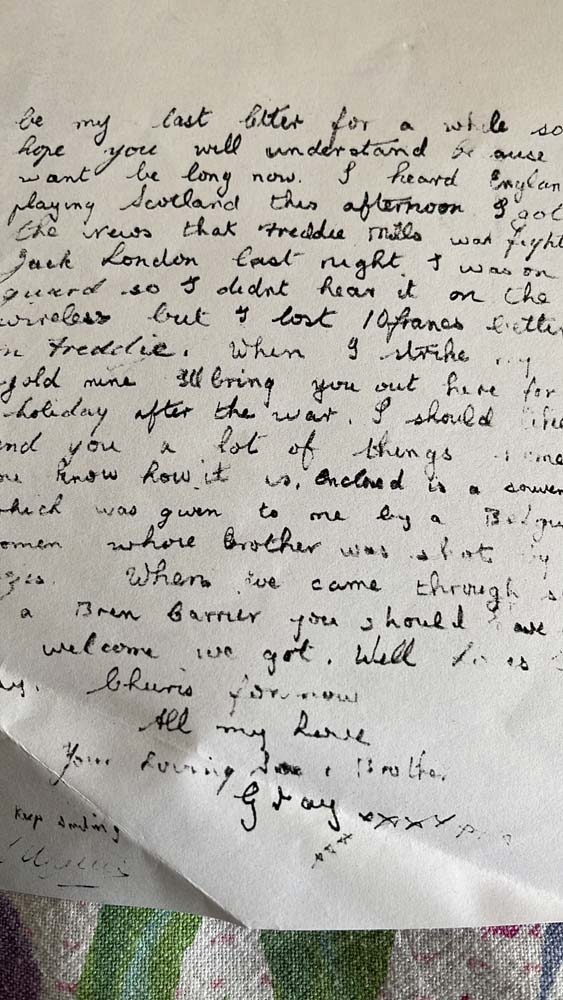 be my last letter for a while so
hope you will understand because
want be long now. I heard Englan
playing Scotland this afternoon I got
the news that Freddie Mills was fight
Jack London last night. I was on
guard so I didnt hear it on the
wireless but I lost 10 francs bettin
n Freddie. When I strike my
gold mine Ill bring you out here for
holiday after the war. I should like
nd you a lot of things
ou know how it is, enclosed is a souven
which was given to me by a Belgi
omen whose brother was shot by
zis. When we came through
a Bren Carrier you should have
welcome we got. Well
Cheeris for now
All my love
Your Loving Son & Brother
Gray xxxx
xxx
Keep smiling